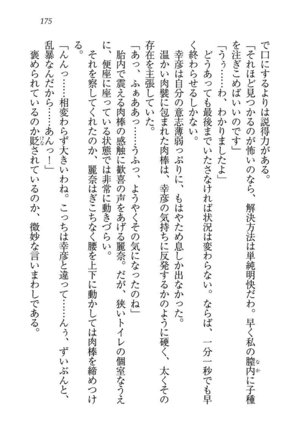 175
で口にするよりは説得力がある。
「それほど見つかるのが怖いのなら、解決方法は単純明快だわ。早く私の膣内に子種
を注ぎこめばいいのです」
「うぅ……わ、わかりましたよ」
どうあっても最後までいたさなければ状況は変わらない。ならば、一分一秒でも早
く終わらせるしかない。
幸彦は自分の意志薄弱っぷりに、もはやため息しか出なかった。だが、麗奈の温か
い胎内の肉襞に包まれた肉棒は、幸彦の気持ちに反発するかのように硬く、太くその
存在を主張していた。
「あっ、ふぁああ……うふっ、ようやくその気になったのね」
胎内で震える肉棒の感触に歓喜の声をあげる麗奈。だが、狭いトイレの個室なうえ
に、便座に座っている状態では非常に動きづらい。
それを察してくれたのか、麗奈はぎこちなく腰を上下に動かしては肉棒を締めつけ
「んんっ……相変わらず大きいわね。こっちは幸彦と違って……んぅ、ずいぶんと、
乱暴なんだから……あんっ！」
褒められているのか貶されているのか、微妙な言いまわしである。